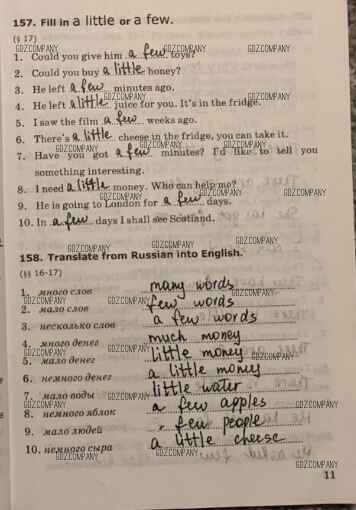 157. Fill in a little or a few.
(§ 17)
1. Could you give him a few toys?
2. Could you buy a little honey?
3. He left a few minutes ago.
4. He left a little juice for you. It's in the fridge.
5. I saw the film a few weeks ago.
6. There's a little cheese in the fridge, you can take it.
7. Have you got a few minutes? I'd like to tell you
something interesting.
8. I need a little money. Who can help me?
9. He is going to London for a few days.
10. In a few days I shall see Scotland.
158. Translate from Russian into English.
(§§ 16-17)
1. много слов many words
2. мало слов few words
3. несколько слов a few words
4. много денег much money
5. мало денег little money
6. немного денег a little money
7. мало воды little water
8. немного яблок a few apples
9. мало людей few people
10. немного сыра a little cheese
11
GDZ.COMPANY